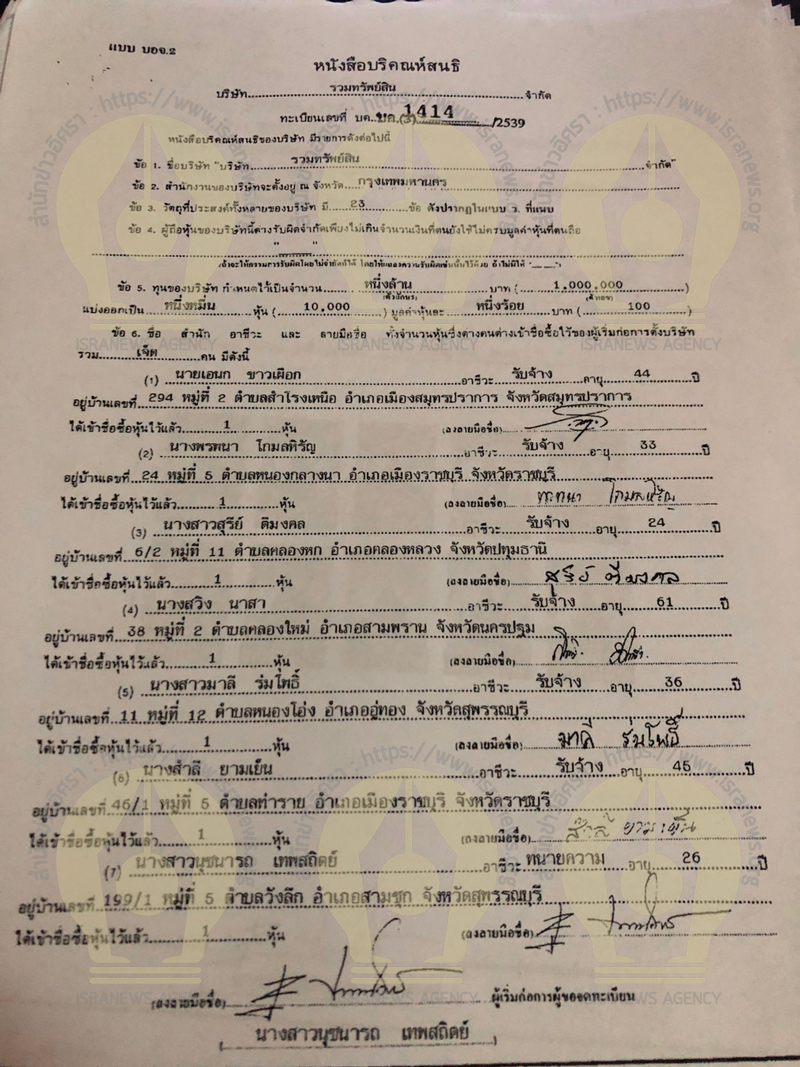 แบบ บอจ.2
หนังสือบริคณห์สนธิ
บริษัท รวมทรัพย์สิน จำกัด
ทะเบียนเลขที่ บค. 1414 /2539
หนังสือบริคณห์สนธิของบริษัท มีรายการดังต่อไปนี้
ข้อ 1. ชื่อบริษัท "บริษัท รวมทรัพย์สิน จำกัด"
ข้อ 2. สำนักงานของบริษัทจะตั้งอยู่ ณ จังหวัด กรุงเทพมหานคร
ข้อ 3. วัตถุที่ประสงค์ทั้งหลายของบริษัท มี 23 ข้อ ดังปรากฏในแบบ ว. ที่แนบ
ข้อ 4. ผู้ถือหุ้นของบริษัทนี้ต่างรับผิดจำกัดเพียงไม่เกินจำนวนเงินที่ตนยังใช้ไม่ครบมูลค่าหุ้นที่ตนถือ
" "
(ถ้าจะให้กรรมการรับผิดโดยไม่จำกัดก็ได้ โดยให้แสดงความรับผิดเช่นนั้นไว้ด้วย ถ้าไม่มีให้ "___")
ข้อ 5. ทุนของบริษัท กำหนดไว้เป็นจำนวน หนึ่งล้าน บาท ( 1,000,000 )
(ตัวอักษร) (ตัวเลข)
แบ่งออกเป็น หนึ่งหมื่น หุ้น ( 10,000 ) มูลค่าหุ้นละ หนึ่งร้อย บาท ( 100 )
ข้อ 6. ชื่อ สำนัก อาชีวะ และ ลายมือชื่อ ทั้งจำนวนหุ้นซึ่งต่างคนต่างเข้าชื่อซื้อไว้ของผู้เริ่มก่อการตั้งบริษัท
รวม เจ็ด คน มีดังนี้
(1) นายเอนก ขาวเผือก อาชีวะ รับจ้าง อายุ 44 ปี
อยู่บ้านเลขที่ 294 หมู่ที่ 2 ตำบลสำโรงเหนือ อำเภอเมืองสมุทรปราการ จังหวัดสมุทรปราการ
ได้เข้าชื่อซื้อหุ้นไว้แล้ว 1 หุ้น (ลงลายมือชื่อ)
(2) นางพรทนา โกมลหิรัญ อาชีวะ รับจ้าง อายุ 33 ปี
อยู่บ้านเลขที่ 24 หมู่ที่ 5 ตำบลหนองกลางนา อำเภอเมืองราชบุรี จังหวัดราชบุรี
ได้เข้าชื่อซื้อหุ้นไว้แล้ว 1 หุ้น (ลงลายมือชื่อ)
(3) นางสาวสุรีย์ ดีมงคล อาชีวะ รับจ้าง อายุ 24 ปี
อยู่บ้านเลขที่ 6/2 หมู่ที่ 11 ตำบลคลองหก อำเภอคลองหลวง จังหวัดปทุมธานี
ได้เข้าชื่อซื้อหุ้นไว้แล้ว 1 หุ้น (ลงลายมือชื่อ) สุรีย์ ดีมงคล
(4) นางสวิง นาสา อาชีวะ รับจ้าง อายุ 61 ปี
อยู่บ้านเลขที่ 38 หมู่ที่ 2 ตำบลคลองใหม่ อำเภอสามพราน จังหวัดนครปฐม
ได้เข้าชื่อซื้อหุ้นไว้แล้ว 1 หุ้น (ลงลายมือชื่อ)
(5) นางสาวมาลี ร่มโพธิ์ อาชีวะ รับจ้าง อายุ 36 ปี
อยู่บ้านเลขที่ 11 หมู่ที่ 12 ตำบลหนองโอ่ง อำเภออู่ทอง จังหวัดสุพรรณบุรี
ได้เข้าชื่อซื้อหุ้นไว้แล้ว 1 หุ้น (ลงลายมือชื่อ) มาลี ร่มโพธิ์
(6) นางสำลี ยามเย็น อาชีวะ รับจ้าง อายุ 45 ปี
อยู่บ้านเลขที่ 46/1 หมู่ที่ 5 ตำบลท่าราย อำเภอเมืองราชบุรี จังหวัดราชบุรี
ได้เข้าชื่อซื้อหุ้นไว้แล้ว 1 หุ้น (ลงลายมือชื่อ) สำลี ยามเย็น
(7) นางสาวนุชนารถ เทพสถิตย์ อาชีวะ ทนายความ อายุ 26 ปี
อยู่บ้านเลขที่ 199/1 หมู่ที่ 5 ตำบลวังลึก อำเภอสามชุก จังหวัดสุพรรณบุรี
ได้เข้าชื่อซื้อหุ้นไว้แล้ว 1 หุ้น (ลงลายมือชื่อ)
(ลงลายมือชื่อ) ผู้เริ่มก่อการผู้ขอจดทะเบียน
( นางสาวนุชนารถ เทพสถิตย์ )
สำนักข่าวอิศรา : https://www.isranews.org
ISRANEWS AGENCY